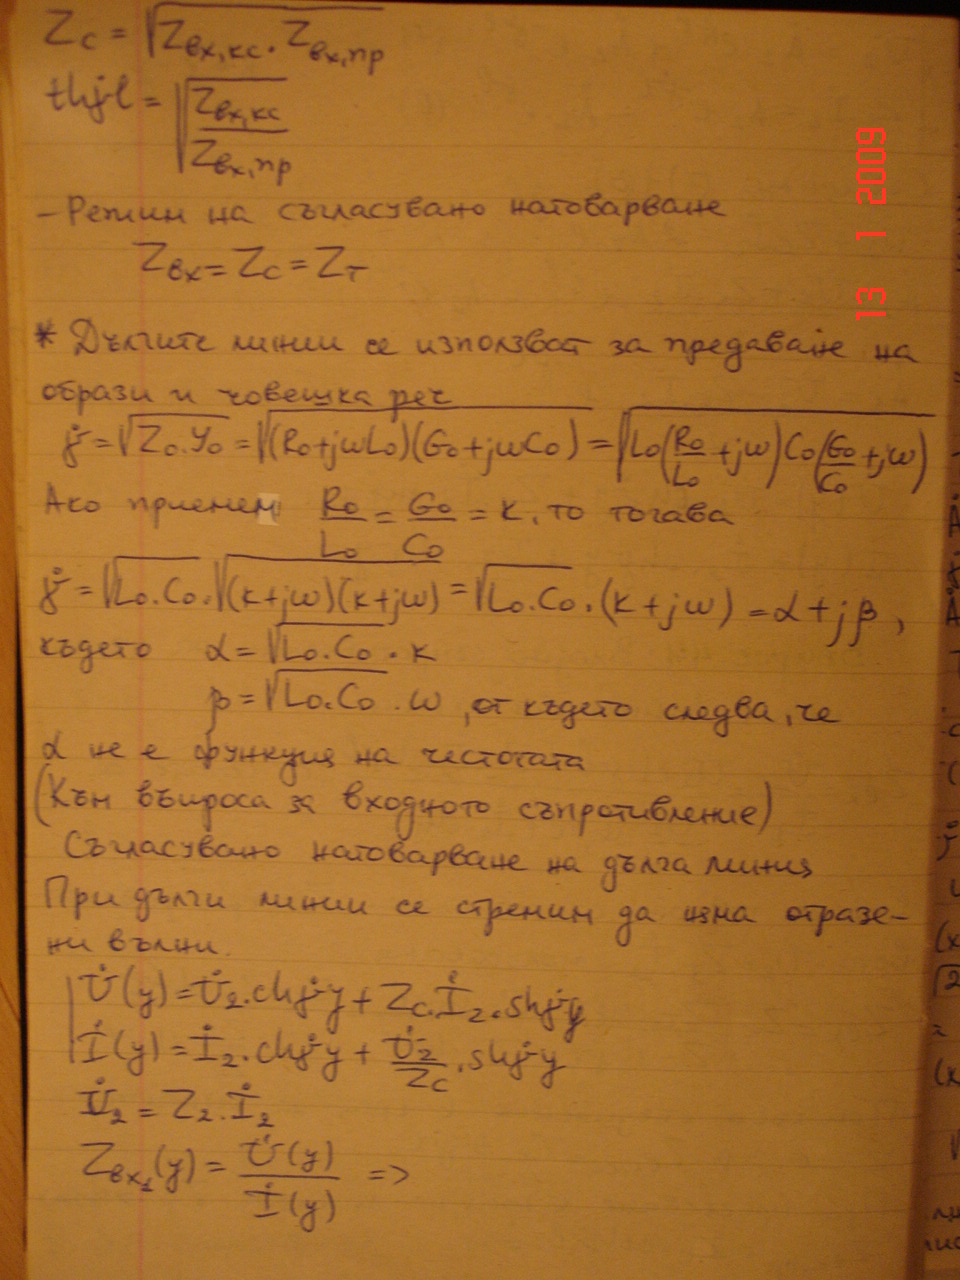 Zc = √(Zвх,кс . Zвх,пр)
thγ̇l = √(Zвх,кс / Zвх,пр)
– Режим на съгласувано натоварване
Zвх = Zc = Zт
* Дългите линии се използват за предаване на
образи и човешка реч
γ̇ = √(Z₀.Y₀) = √((R₀+jωL₀)(G₀+jωC₀)) = √(L₀(R₀/L₀+jω)C₀(G₀/C₀+jω))
Ако приемем R₀/L₀ = G₀/C₀ = k, то тогава
γ̇ = √(L₀.C₀).√((k+jω)(k+jω)) = √(L₀.C₀).(k+jω) = α+jβ,
където α = √(L₀.C₀) . k
β = √(L₀.C₀) . ω, от където следва, че
α не е функция на честотата
(Към въпроса за входното съпротивление)
Съгласувано натоварване на дълга линия
При дълги линии се стремим да няма отразе-
ни вълни.
U̇(y) = U̇₂.chγ̇y + Zc.İ₂.shγ̇y
İ(y) = İ₂.chγ̇y + U̇₂/Zc.shγ̇y
U̇₂ = Z₂.İ₂
Zвх₂(y) = U̇(y)/İ(y) =>
13 1 2009